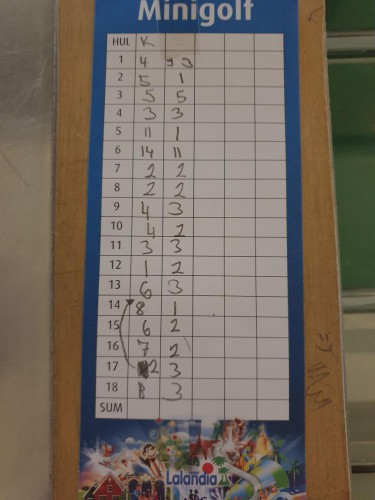 Minigolf
HUL K
1 4 3
2 5 1
3 5 5
4 3 3
5 11 1
6 14 11
7 2 2
8 2 2
9 4 3
10 4 2
11 3 3
12 1 2
13 6 3
14 8 1
15 6 2
16 7 2
17 2 3
18 8 3
SUM
Lalandia